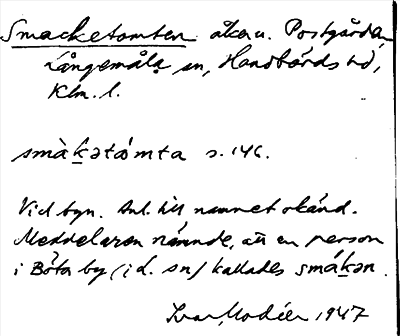 Smacketomten åkern. Postgården,
Långemåla sn, Handbörds hd,
Klm. l.
smàk̲ətómta s. 146.
Vid byn. Anl. till namnet okänd.
Meddelaren nämnde, att en person
i Böta by (i d. sn) kallades smák̲ən.
Ivar Modéer 1947